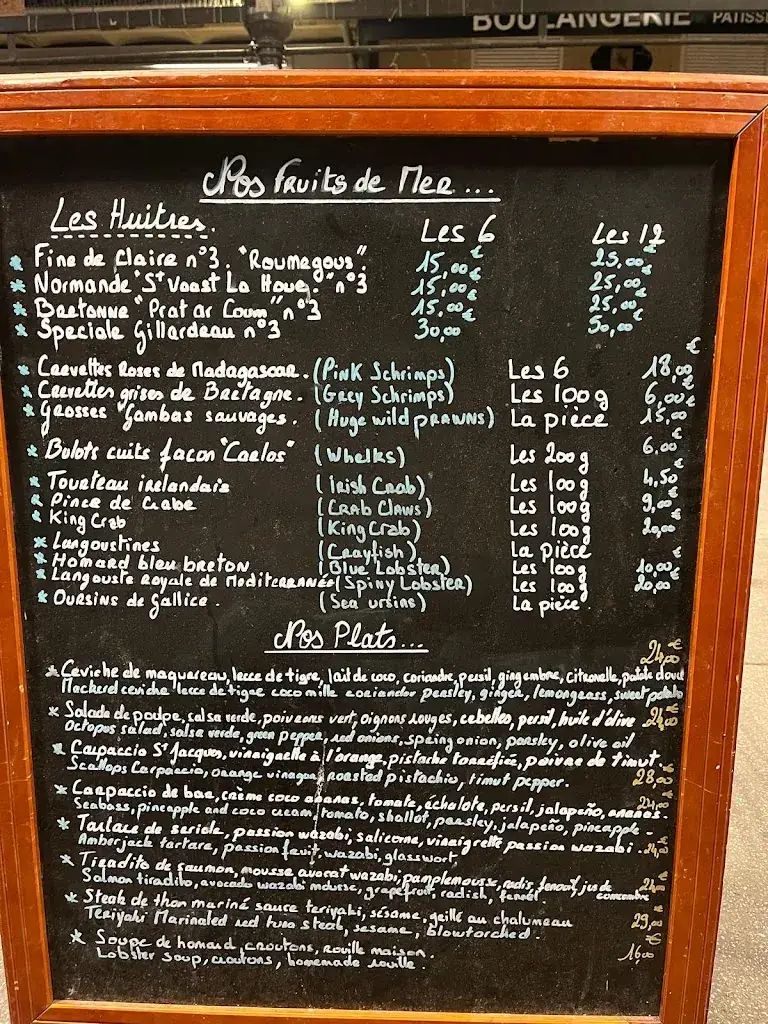 BOULANGERIE PATISS
Nos Fruits de Mer...
Les Huitres. Les 6 Les 12
* Fine de Claire n°3. "Roumegous". 15,00€ 25,00€
* Normande "St Vaast La Houe." n°3 15,00€ 25,00€
* Bretonne "Prat ar Coum" n°3 15,00€ 25,00€
* Speciale Gillardeau n°3 30,00 50,00
* Crevettes Roses de Madagascar. (Pink Schrimps) Les 6 18,00€
* Crevettes grises de Bretagne. (Grey Schrimps) Les 100g 6,00€
* Grosses "Gambas sauvages. (Huge wild prawns) La pièce 15,00
* Bulots cuits façon "Carlos" (Whelks) Les 200g 6,00€
* Tourteau irelandais (Irish Crab) Les 100g 4,50€
* Pince de Crabe (Crab Claws) Les 100g 9,00€
* King Crab (King Crab) Les 100g 20,00€
* Langoustines (Crayfish) La pièce
* Homard bleu breton (Blue Lobster) Les 100g 10,00€
* Langouste Royale de Mediterranée (Spiny Lobster) Les 100g 20,00€
* Oursins de Gallice. (Sea ursins) La pièce.
Nos Plats...
* Ceviche de maquereau, lecce de tigre, lait de coco, coriandre, persil, gingembre, citronelle, patate douce 24,00€
Mackerel ceviche lecce de tigre coco milk coriander parsley, ginger, lemongrass, sweet potato
* Salade de poulpe, salsa verde, poivrons vert, oignons rouges, cebettes, persil, huile d'olive 24,00€
Octopus salad, salsa verde, green pepper, red onions, spring onion, parsley, olive oil
* Carpaccio St Jacques, vinaigrette à l'orange, pistache torréfiée, poivre de timut.
Scallops Carpaccio, orange vinegar, roasted pistachio, timut pepper. 28,00€
* Carpaccio de bar, crème coco ananas, tomate, échalote, persil, jalapeño, ananas. 24,00€
Seabass, pineapple and coco cream, tomato, shallot, parsley, jalapeño, pineapple -
* Tartare de seriole, passion wazabi, salicorne, vinaigrette passion wazabi. 24,00€
Amberjack tartare, passion fruit, wazabi, glasswort
* Tiradito de saumon, mousse avocat wazabi, pamplemousse, radis, fenouil, jus de concombre 24,00€
Salmon tiradito, avocado wazabi mousse, grapefruit, radish, fennel.
* Steak de thon mariné sauce teriyaki, sésame, grillé au chalumeau 29,00€
Teriyaki Marinated red tuna steak, sesame, blowtorched.
* Soupe de homard, croutons, rouille maison. 16,00€
Lobster soup, croutons, homemade rouille.